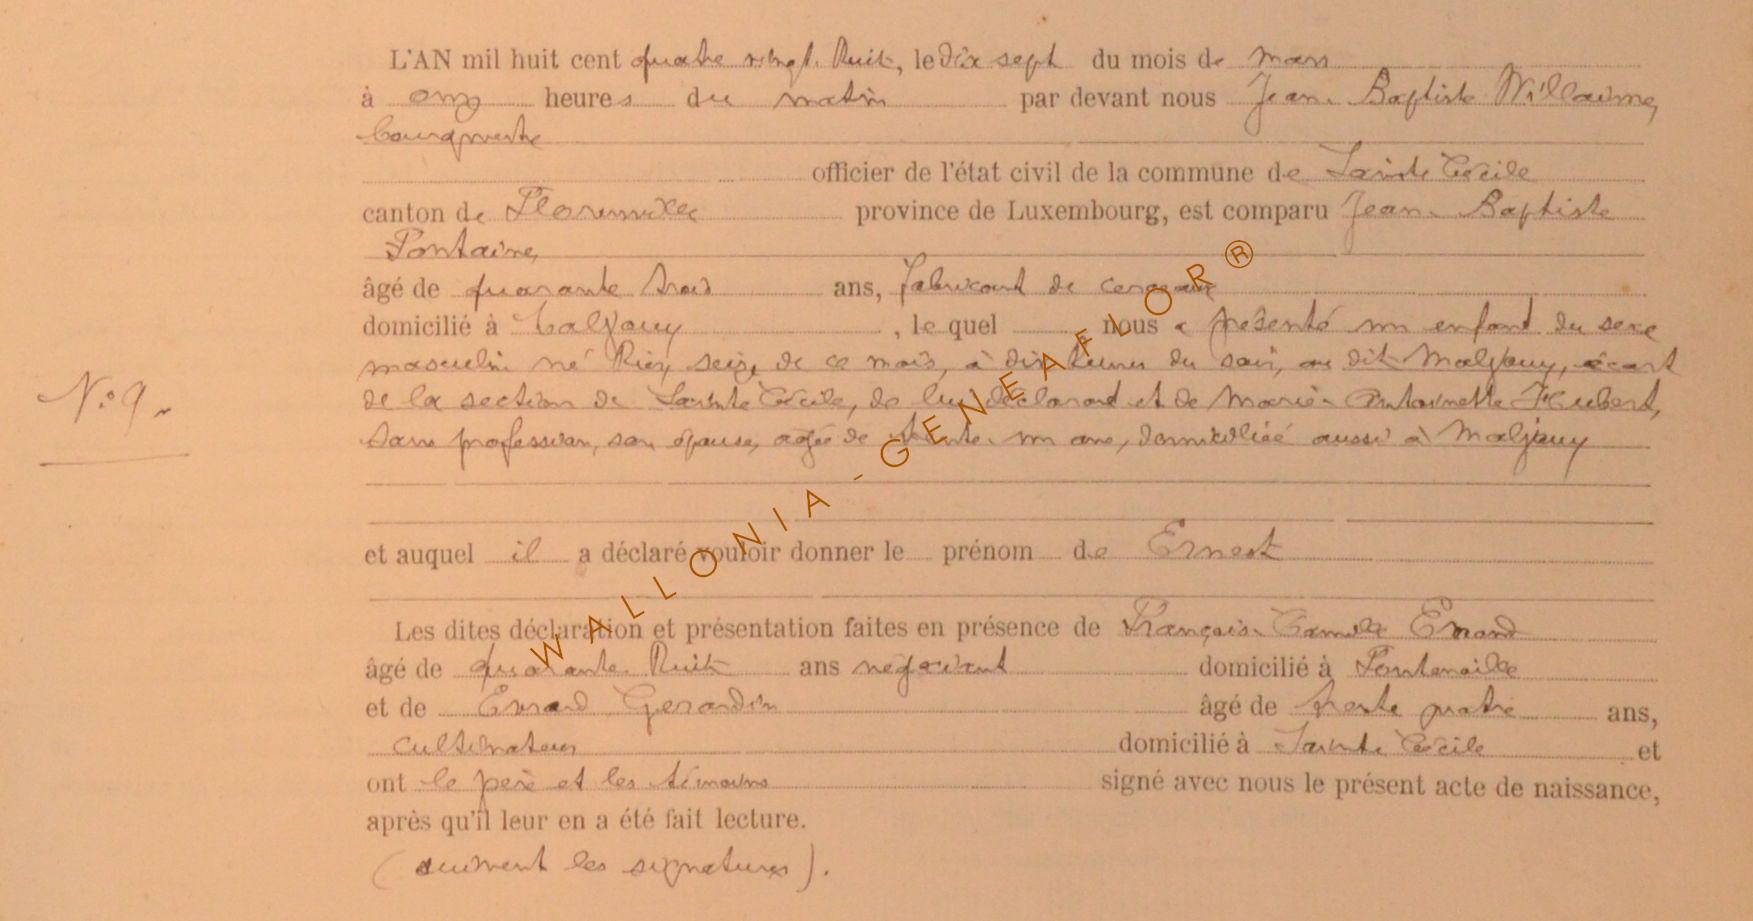 L'AN mil huit cent quatre vingt huit, le dix sept du mois de mars
à onze heures du matin par devant nous Jean-Baptiste Willaime,
bourgmestre
officier de l'état civil de la commune de Sainte Cécile
canton de Florenville province de Luxembourg, est comparu Jean-Baptiste
Fontaine,
âgé de quarante trois ans, fabricant de cerceaux
domicilié à Maljouy, le quel nous a présenté un enfant du sexe
masculin né hier, seize de ce mois, à dix heures du soir, au dit Maljouy, écart
de la section de Sainte Cécile, de lui déclarant et de Marie-Antoinette Hubert,
sans profession, son épouse, agée de trente un ans, domiciliée aussi à Maljouy
et auquel il a déclaré vouloir donner le prénom de Ernest
Les dites déclaration et présentation faites en présence de François-Camille Evrard
âgé de quarante huit ans négociant domicilié à Fontenoille
et de Evrard Gerardin âgé de trente quatre ans,
cultivateur domicilié à Sainte Cécile et
ont le père et les témoins signé avec nous le présent acte de naissance,
après qu'il leur en a été fait lecture.
(suivent les signatures).
N° 9.
WALLONIA-GENEAFLOR®